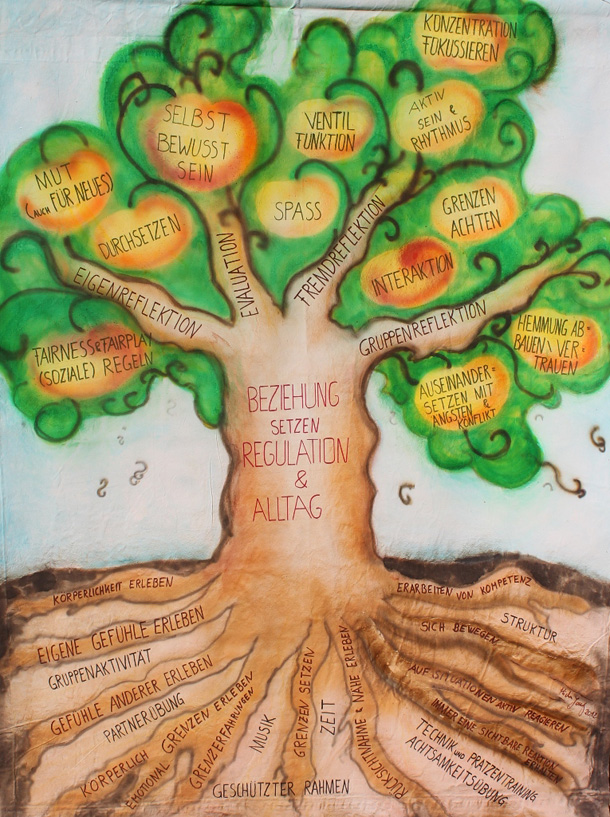 KONZENTRATION
FOKUSSIEREN
SELBST
BEWUSST
SEIN
VENTIL
FUNKTION
AKTIV
SEIN &
RHYTHMUS
MUT
(AUCH FÜR NEUES)
DURCHSETZEN
SPASS
GRENZEN
ACHTEN
INTERAKTION
EIGENREFLEKTION
EVALUATION
FREMDREFLEKTION
GRUPPENREFLEKTION
FAIRNESS & FAIRPLAY
(SOZIALE) REGELN
HEMMUNG AB=
BAUEN \ VER=
TRAUEN
AUSEINANDER=
SETZEN MIT
ÄNGSTEN &
KONFLIKT
BEZIEHUNG
SETZEN
REGULATION
&
ALLTAG
KÖRPERLICHKEIT ERLEBEN
EIGENE GEFÜHLE ERLEBEN
GRUPPENAKTIVITÄT
GEFÜHLE ANDERER ERLEBEN
PARTNERÜBUNG
KÖRPERLICH
EMOTIONAL GRENZEN ERLEBEN
GRENZERFAHRUNGEN
MUSIK
GRENZEN SETZEN
ZEIT
RÜCKSICHTNAHME & NÄHE ERLEBEN
GESCHÜTZTER RAHMEN
ERARBEITEN VON KOMPETENZ
STRUKTUR
SICH BEWEGEN
AUF SITUATIONEN AKTIV REAGIEREN
IMMER EINE SICHTBARE REAKTION
TECHNIK UND PRATZENTRAINING
ACHTSAMKEITSÜBUNG